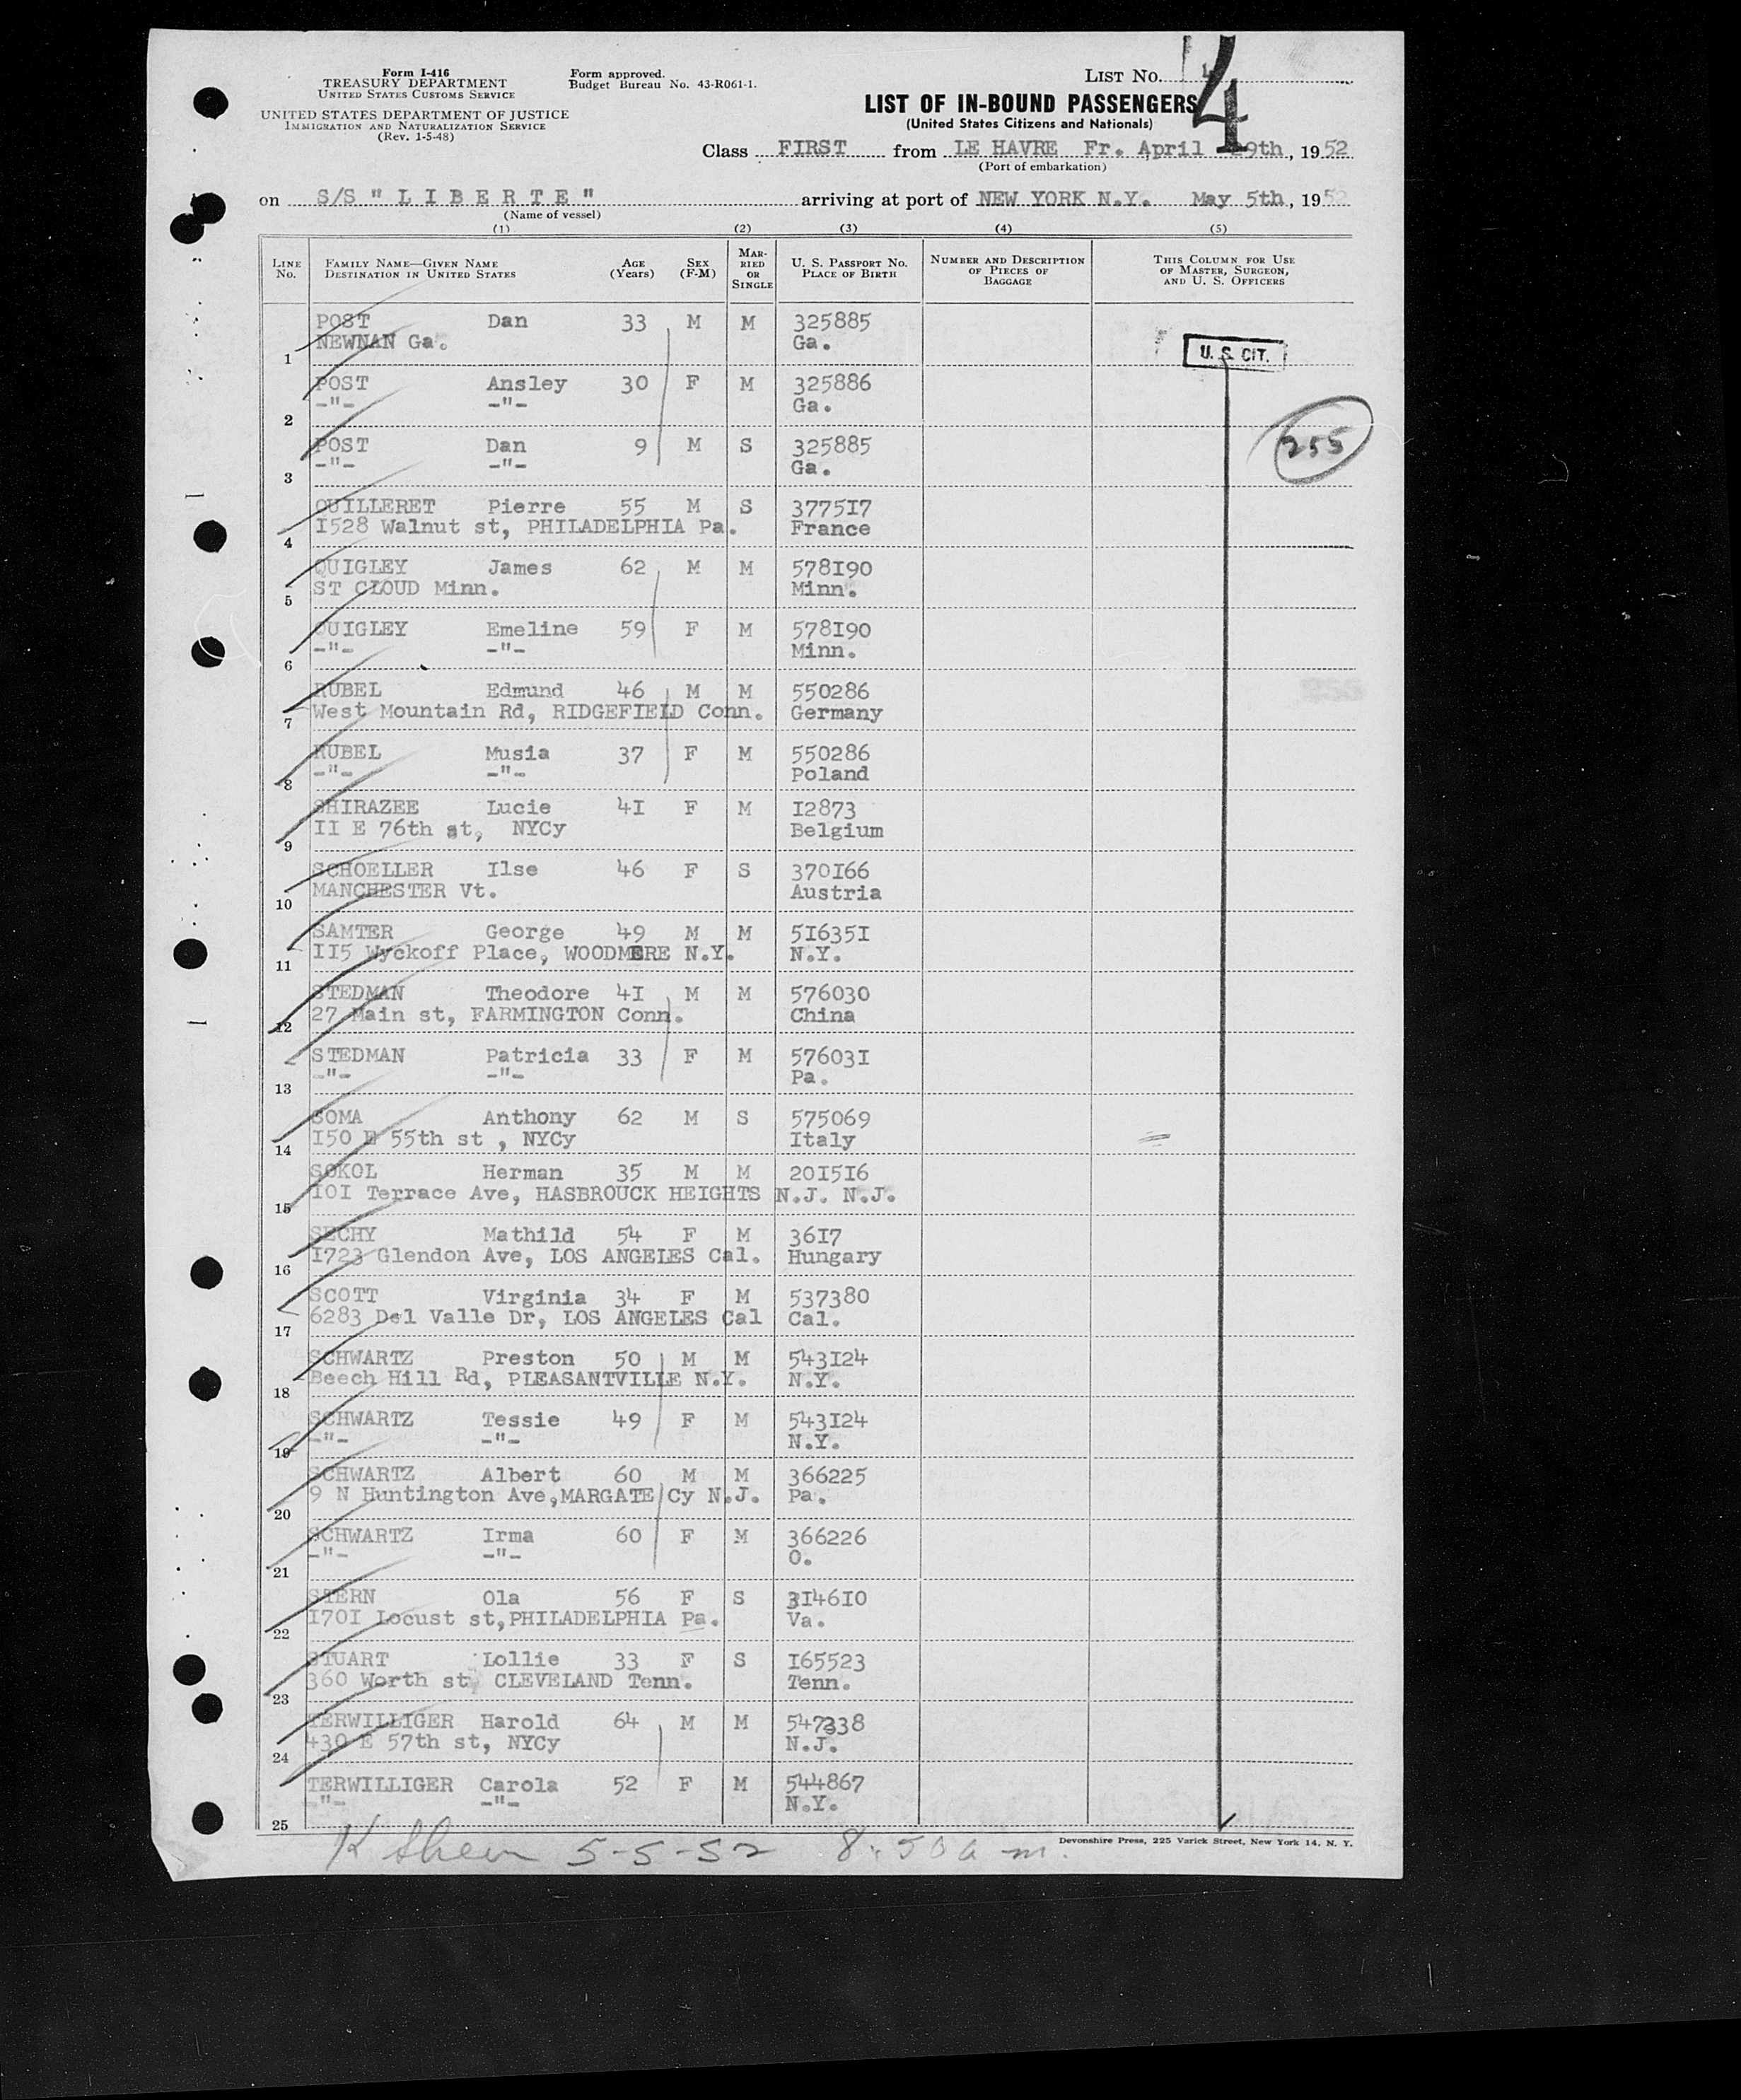 Form I-416
TREASURY DEPARTMENT
UNITED STATES CUSTOMS SERVICE
UNITED STATES DEPARTMENT OF JUSTICE
IMMIGRATION AND NATURALIZATION SERVICE
(Rev. 1-5-48)
Form approved.
Budget Bureau No. 43-R061-1.
LIST NO. 4
LIST OF IN-BOUND PASSENGERS
(United States Citizens and Nationals)
Class FIRST from LE HAVRE Fr. April 29th, 1952
(Port of embarkation)
on S/S "LIBERTE" arriving at port of NEW YORK N.Y. May 5th, 1952
(Name of vessel)
(1) (2) (3) (4) (5)
LINE No. FAMILY NAME—GIVEN NAME DESTINATION IN UNITED STATES AGE (Years) SEX (F-M) MARRIED OR SINGLE U. S. PASSPORT NO. PLACE OF BIRTH NUMBER AND DESCRIPTION OF PIECES OF BAGGAGE THIS COLUMN FOR USE OF MASTER, SURGEON, AND U. S. OFFICERS
POST Dan 33 M M 325885
NEWNAN Ga. Ga. U. S. CIT.
1
POST Ansley 30 F M 325886
-"- -"- Ga.
2
POST Dan 9 M S 325885 255
-"- -"- Ga.
3
QUILLERET Pierre 55 M S 3775I7
I528 Walnut st, PHILADELPHIA Pa. France
4
QUIGLEY James 62 M M 578I90
ST CLOUD Minn. Minn.
5
QUIGLEY Emeline 59 F M 578I90
-"- -"- Minn.
6
RUBEL Edmund 46 M M 550286
West Mountain Rd, RIDGEFIELD Conn. Germany
7
RUBEL Musia 37 F M 550286
-"- -"- Poland
8
SHIRAZEE Lucie 4I F M I2873
II E 76th st, NYCy Belgium
9
SCHOELLER Ilse 46 F S 370I66
MANCHESTER Vt. Austria
10
SAMTER George 49 M M 5I635I
II5 Wyckoff Place, WOODMERE N.Y. N.Y.
11
STEDMAN Theodore 4I M M 576030
27 Main st, FARMINGTON Conn. China
12
STEDMAN Patricia 33 F M 57603I
-"- -"- Pa.
13
SOMA Anthony 62 M S 575069
I50 E 55th st , NYCy Italy
14
SOKOL Herman 35 M M 20I5I6
IOI Terrace Ave, HASBROUCK HEIGHTS N.J. N.J.
15
SECHY Mathild 54 F M 36I7
I723 Glendon Ave, LOS ANGELES Cal. Hungary
16
SCOTT Virginia 34 F M 537380
6283 Del Valle Dr, LOS ANGELES Cal Cal.
17
SCHWARTZ Preston 50 M M 543I24
Beech Hill Rd, PLEASANTVILLE N.Y. N.Y.
18
SCHWARTZ Tessie 49 F M 543I24
-"- -"- N.Y.
19
SCHWARTZ Albert 60 M M 366225
9 N Huntington Ave,MARGATE Cy N.J. Pa.
20
SCHWARTZ Irma 60 F M 366226
-"- -"- O.
21
STERN Ola 56 F S 3I46I0
I70I Locust st,PHILADELPHIA Pa. Va.
22
STUART Lollie 33 F S I65523
360 Worth st CLEVELAND Tenn. Tenn.
23
TERWILLIGER Harold 64 M M 547338
430 E 57th st, NYCy N.J.
24
TERWILLIGER Carola 52 F M 544867
-"- -"- N.Y.
25
Devonshire Press, 225 Varick Street, New York 14, N. Y.
K 5-5-52 8:50 a m.